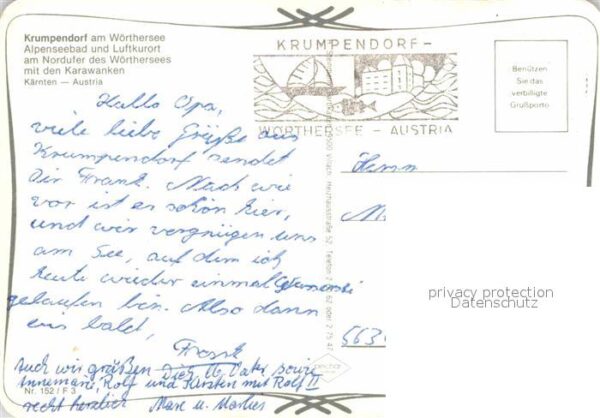 Krumpendorf am Wörthersee
Alpenseebad und Luftkurort
am Nordufer des Wörthersees
mit den Karawanken
Kärnten — Austria
KRUMPENDORF -
WÖRTHERSEE - AUSTRIA
Benützen
Sie das
verbilligte
Grußporto
Hallo Opa,
viele liebe Grüße aus
Krumpendorf sendet
Dir Frank. Nach wie
vor ist es schön hier,
und wir vergnügen uns
am See, auf dem ich
heute wieder einmal
gelaufen bin. Also dann
bis bald,
Frank
Auch wir grüßen Dich Vater sowie
Annemarie, Rolf und Kirsten mit Rolf II
recht herzlich
Nr. 152 / F 3
Herrn
M
563
privacy protection
Datenschutz